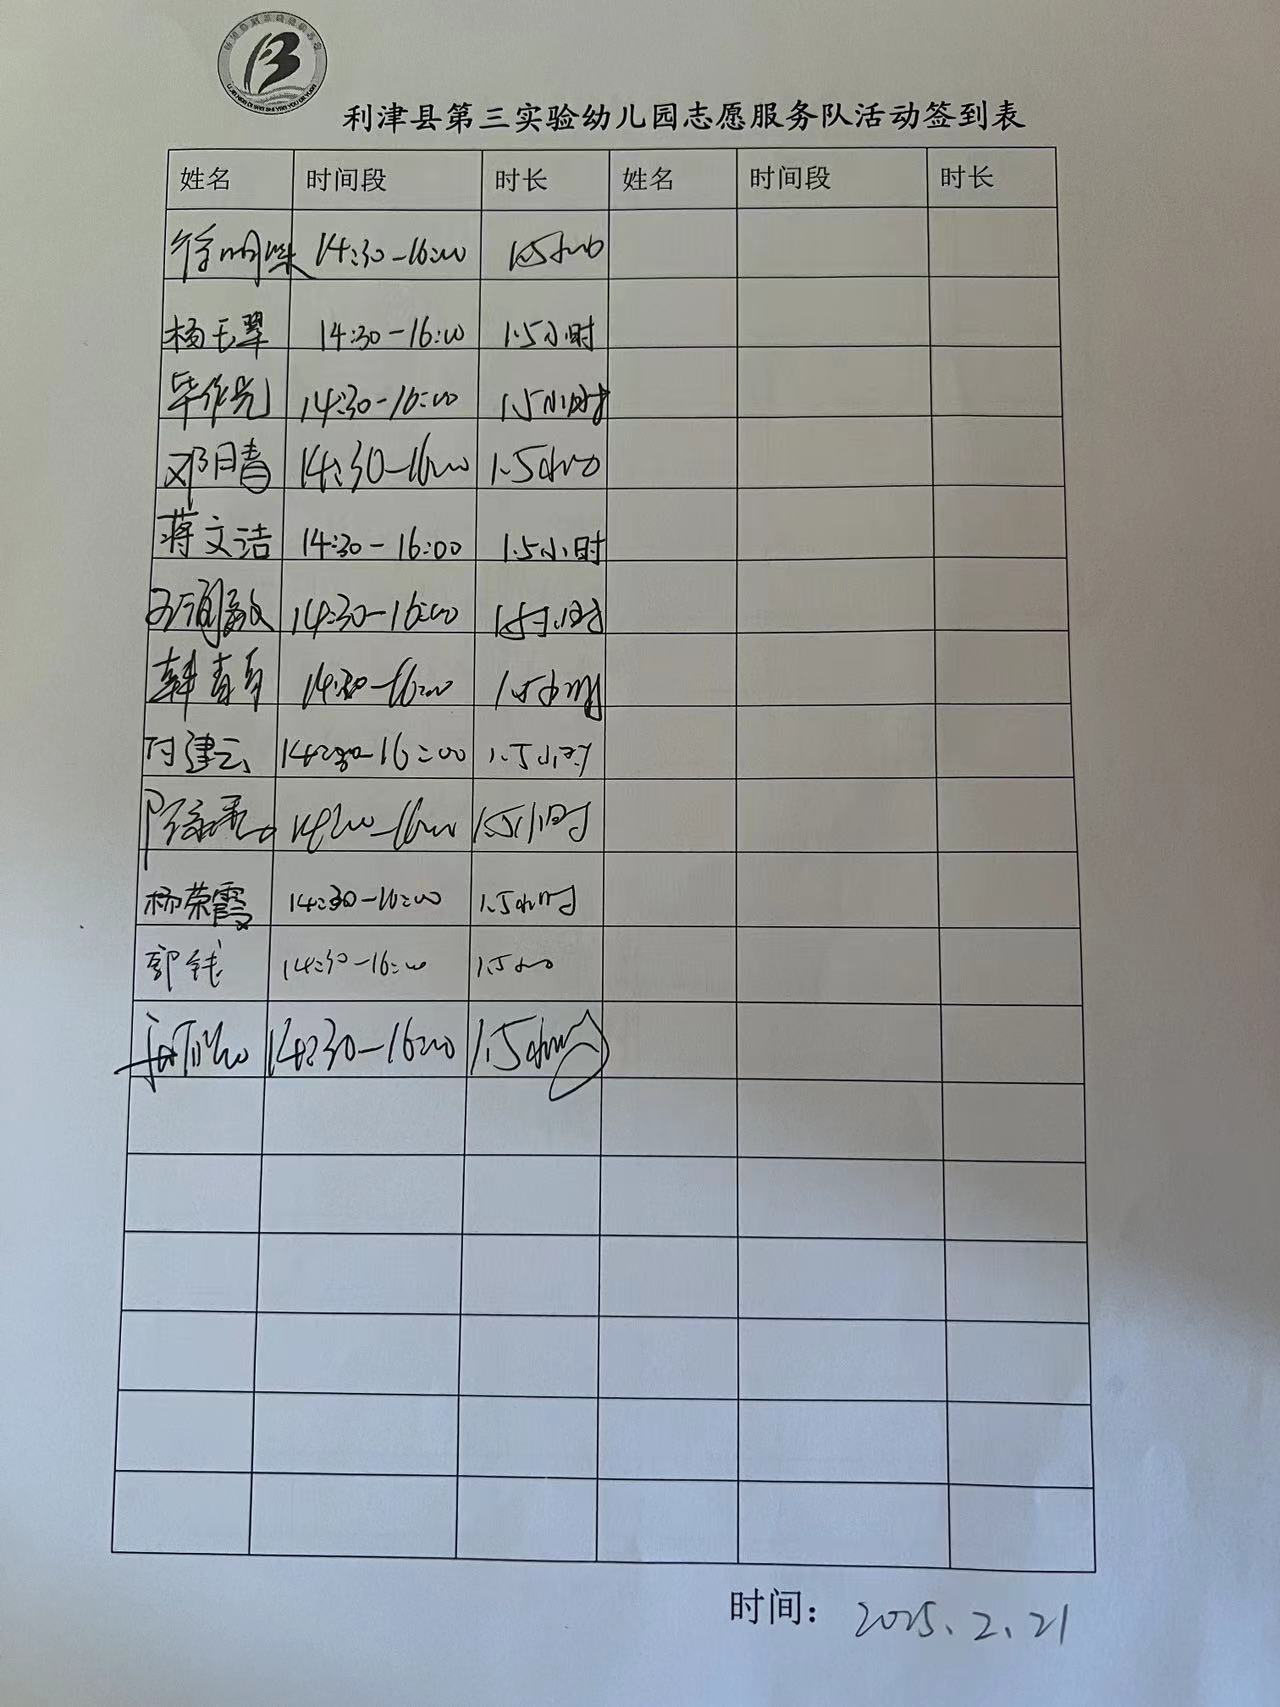 利津县第三实验幼儿园志愿服务队活动签到表
姓名 时间段 时长 姓名 时间段 时长
14:30-16:00 1.5小时
杨玉翠 14:30-16:00 1.5小时
毕作光 14:30-16:00 1.5小时
邓月青 14:30-16:00 1.5小时
蒋文洁 14:30-16:00 1.5小时
14:30-16:00 1.5小时
韩青青 14:30-16:00 1.5小时
付建云 14:30-16:00 1.5小时
1.5小时
杨荣霞 14:30-16:00 1.5小时
郭钱 14:30-16:00 1.5小时
14:30-16:00 1.5小时
时间：2025.2.21